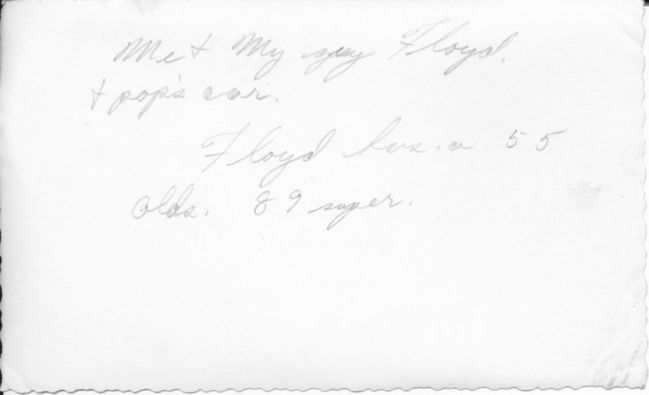 Me & My guy Floyd.
& pop's car.
Floyd has a 55
Olds. 89 super.